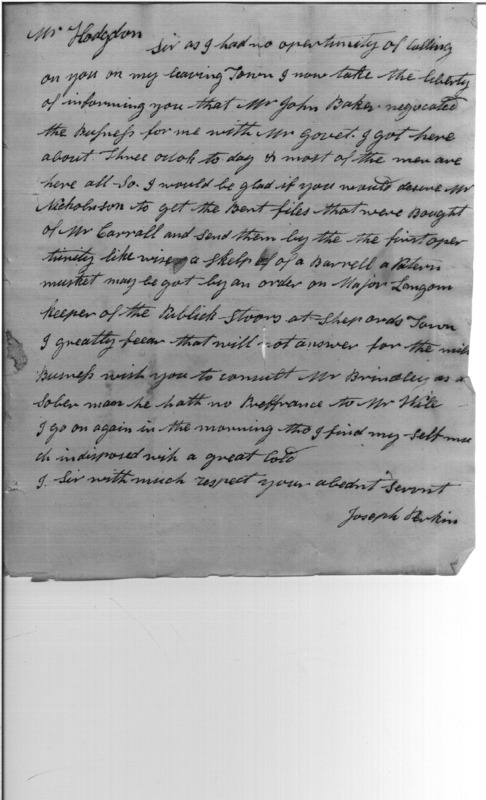 Mr Hodgdon
Sir as I had no opertunity of Calling
on you on my leaving Town I now take the liberty
of informing you that Mr John Baker negocated
the Busness for me with Mr Govet. I got here
about Three oclok to day & most of the men are
here all So. I would be glad if you would desire Mr
Nicholuson to get the Bent files that were Bought
of Mr Carrall and Send them by the the first oper
tunity like wise a Skelp of of a Barrell a Patern
market may be got by an order on Major Langom
keeper of the Publick Stoors at Shepords Town
I greatly feear that will not answer for the mill
Busness wish you to consult Mr Brindley as a
Sober man he hath no Preffrance to Mr
I go on again in the morning tho I find my Self mu
ch indisposed with a great Cold
I. Sir with much respect your abednt Servnt
Joseph Perkin